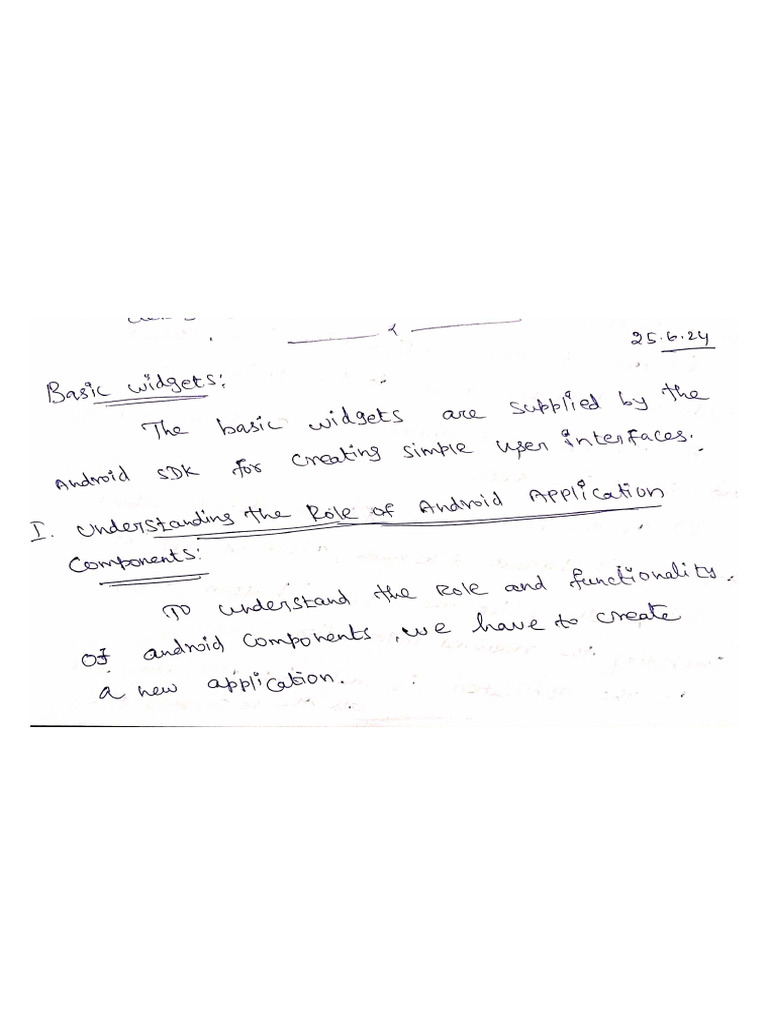 25.6.24
Basic widgets:
The basic widgets are supplied by the
Android SDK for creating simple user interfaces.
I. Understanding the Role of Android Application
Components:
To understand the Role and functionality
of android components, we have to create
a new application.